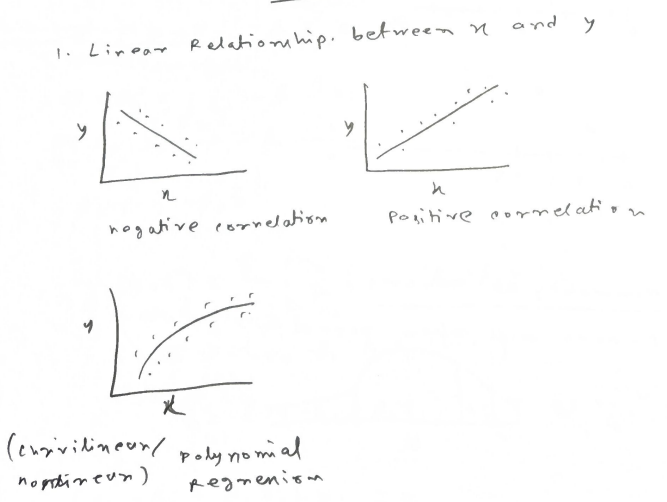 1. Linear Relationship. between x and y
y
x
negative correlation
y
x
Positive correlation
y
x
(curvilinear/ polynomial
nonlinear) Regression